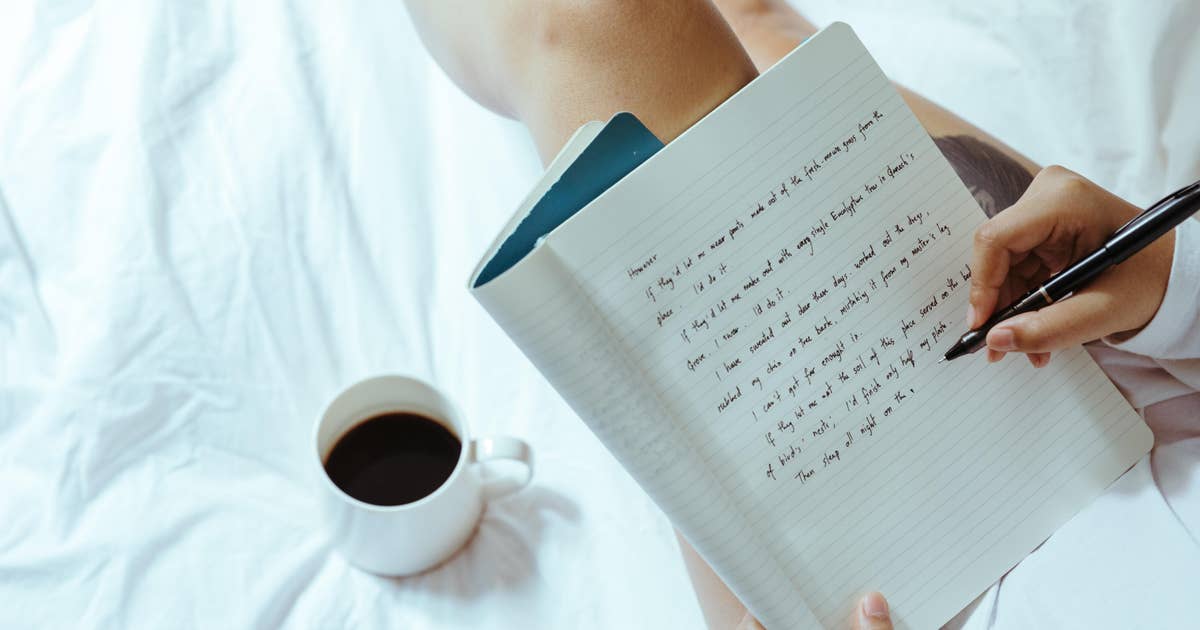 However
If they'd let me wear pants made out of the fresh-mown grass from the
place. I'd do it.
If they'd let me make out with every single Eucalyptus tree in Stomach's
Grove. I swear. I'd do it.
I have sweated out dear these days. worked out the dregs,
rubbed my skin on tree bark, mistaking it from my master's leg
I can't get far enough in.
If they let me eat the soil of this place served on the bed
of birds' nests; I'd finish only half my plate.
Then sleep all night on the